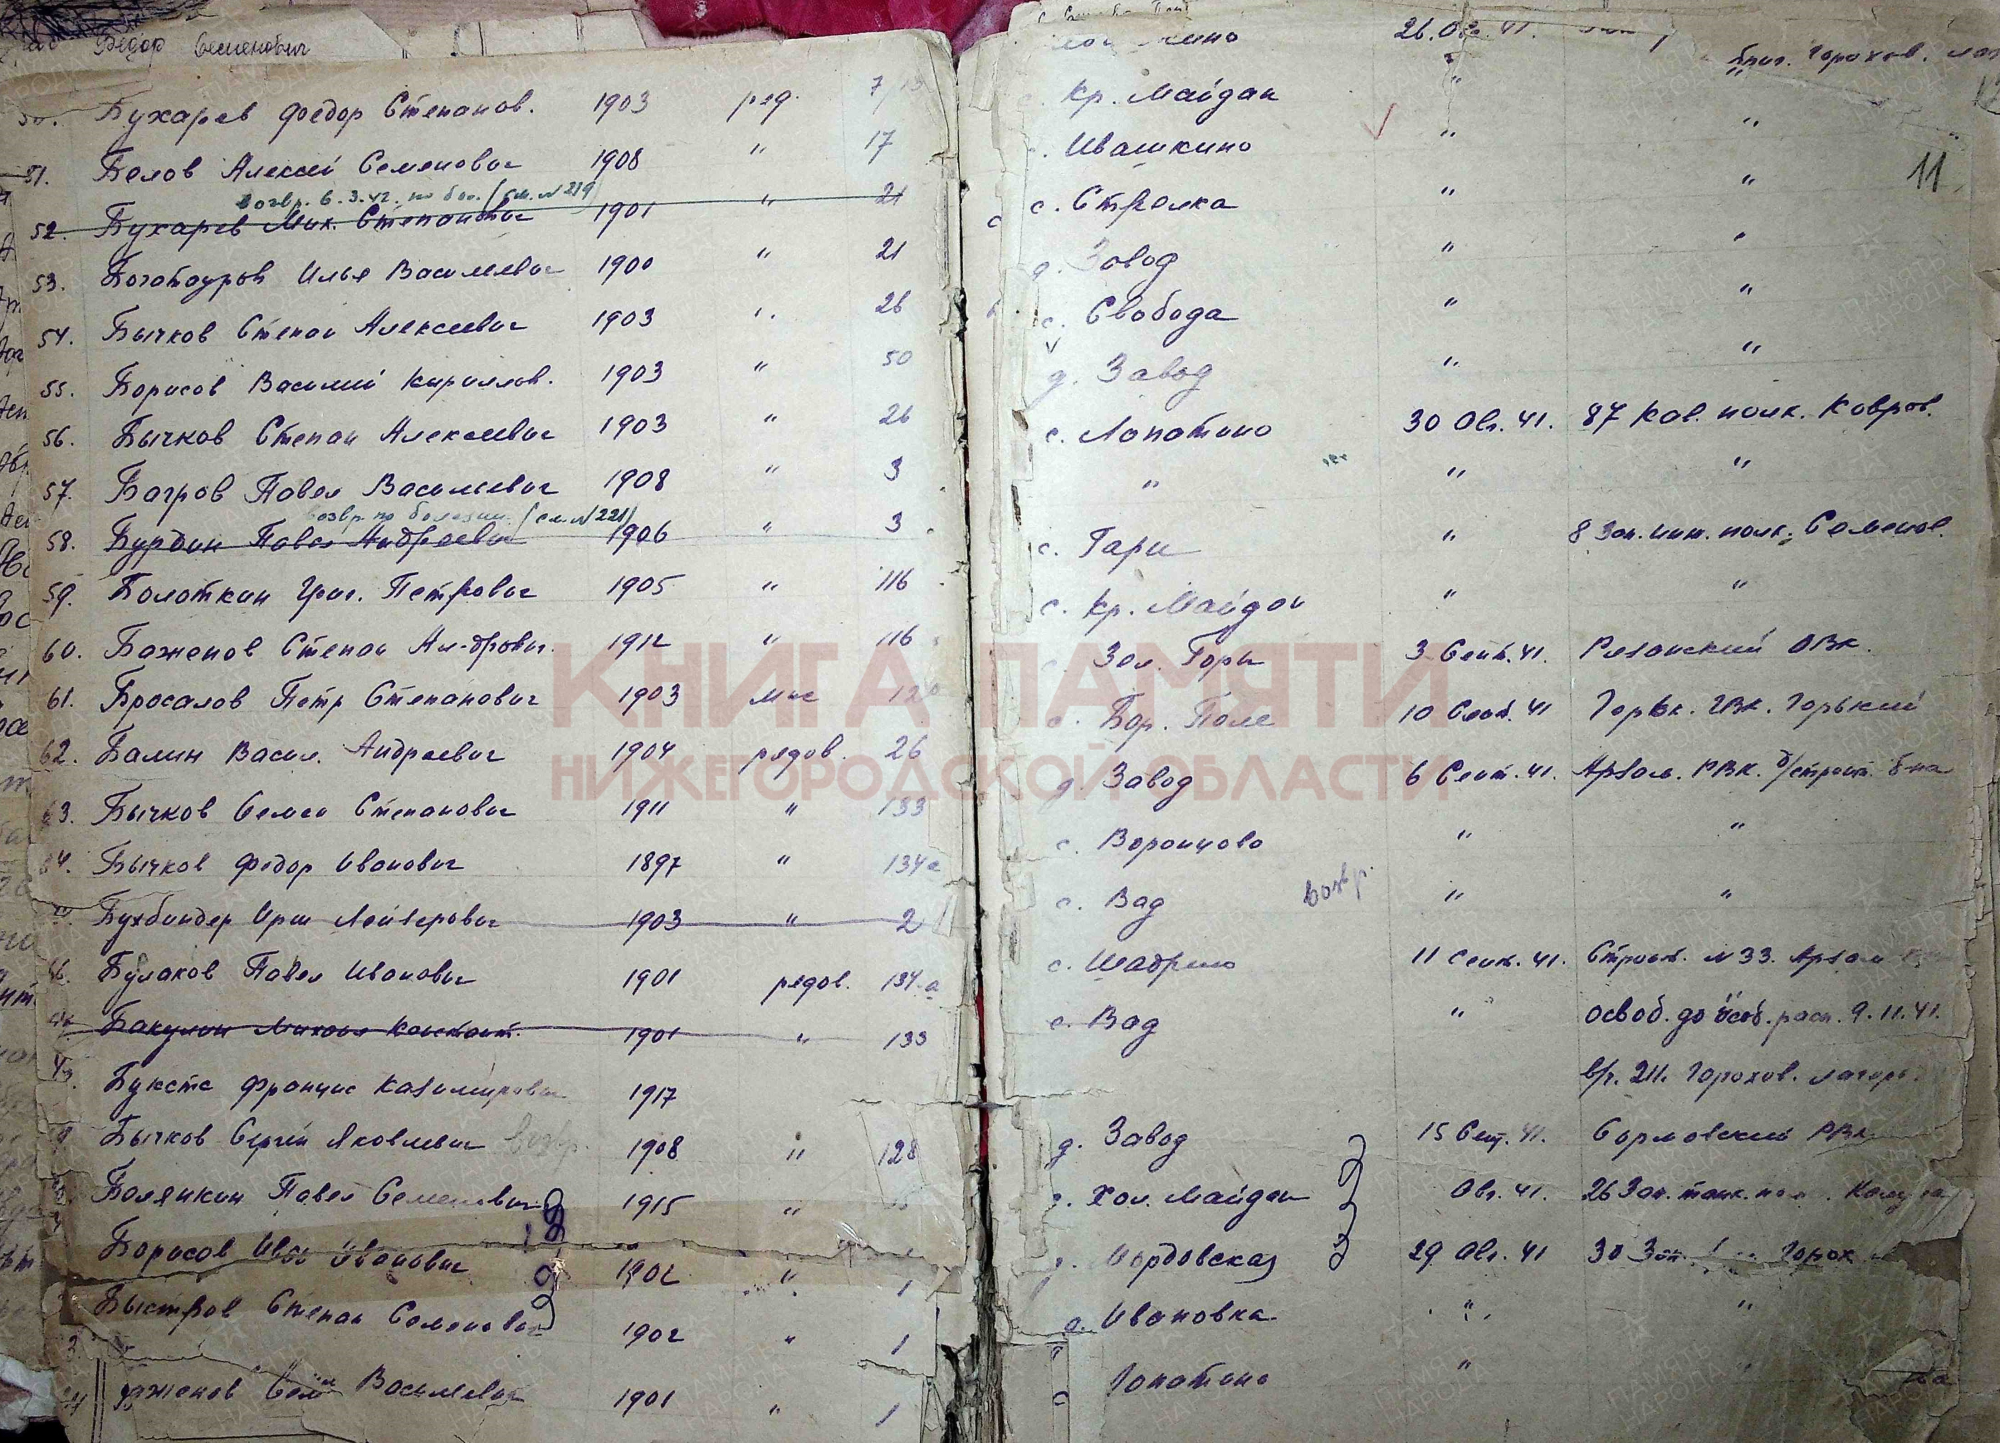 Федор Семенович
Бухарев Федор Степанов. 1903 ряд. 7/13
51. Белов Алексей Семенович 1908 " 17
возвр. 6.3.42. по бол. (см. N 219)
52. Бухарев Мих. Степанович 1901 " 21
53. Богобоуров Илья Васильевич 1900 " 21
54. Бычков Степан Алексеевич 1903 " 26
55. Борисов Василий Кириллов. 1903 " 50
56. Бычков Степан Алексеевич 1903 " 26
57. Багров Павел Васильевич 1908 " 3
возвр. по болезни. (см. N 221)
58. Бурдин Павел Андреевич 1906 " 3
59. Болоткин Григ. Петрович 1905 " 116
60. Баженов Степан Ал-дрович. 1912 " 116
61. Бросалов Петр Степанович 1903 мл с 12
62. Балин Васил. Андреевич 1904 рядов. 26
63. Бычков Семен Степанович 1911 " 133
64. Бычков Федор Иванович 1897 " 134а
Бухбиндер Ирш Лейзерович 1903 " 2
66. Булаков Павел Иванович 1901 рядов. 134-а
Бакулин Михаил Констант. 1901 " 133
Букстс Францис Казимирович 1917
Бычков Сергей Яковлевич возвр. 1908 " 128
Болянкин Павел Семенович 1915 "
Борисов Иван Иванович 1902 " 1
Быстров Степан Семенович 1902 " 1
Василевич 1901 " 1
26. Авг. 41.
Горохов.
Кр. Майдан " "
Ивашкино " "
11
с. Стрелка " "
д. Завод " "
с. Свобода " "
д. Завод " "
с. Лопатино 30 Авг. 41. 87 Кав. полк. Ковров.
" " "
с. Гари " 8 Зап. инж. полк. Семенов.
с. Кр. Майдан " "
Зел. Горы 3 Сент. 41. Рязанский ОВК.
Бор. Поле 10 Сент. 41 Горьк. ГВК. Горький
д. Завод 6 Сент. 41. Арзам. РВК. в/строит. б-на
с. Воронцово " "
с. Вад возвр. " "
с. Шадрино 11 сент. 41. Строит. N 33. Арзам
с. Вад " освоб. до особ. расп. 9.11.41.
в/г. 211. Горохов. лагерь
д. Завод 15 Сент. 41. Сормовский РВК
Хол. Майдан Авг. 41. 26 Зап. танк.
Мордовская 29 Авг. 41 30 Зап. Горох
д. Ивановка " "
Лопатино "
КНИГА ПАМЯТИ
НИЖЕГОРОДСКОЙ ОБЛАСТИ